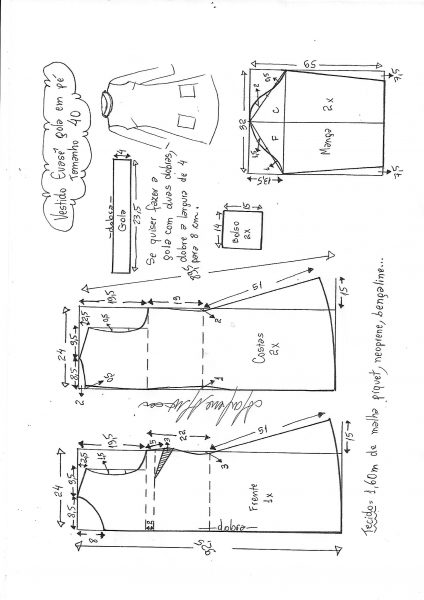 Vestido Evasê gola em pé
Tamanho 40
4
dobra
Gola
23,5
Se quiser fazer a
gola com duas dobras,
dobre a largura de 4
para 8 cm.
59
32
2
0,5
C
F
13,5
Manga
2x
7,5
7,5
15
14
Bolso
2x
24
9,5
8,5
2,5
19,5
19
0,5
2
2
1
51
15
Costas
2x
24
9,5
8,5
2,5
1,5
19,5
15
3
22
3
2
8
51
15
Frente
1x
dobra
Tecido= 1,60m de malha piquet, neoprene, bengaline...